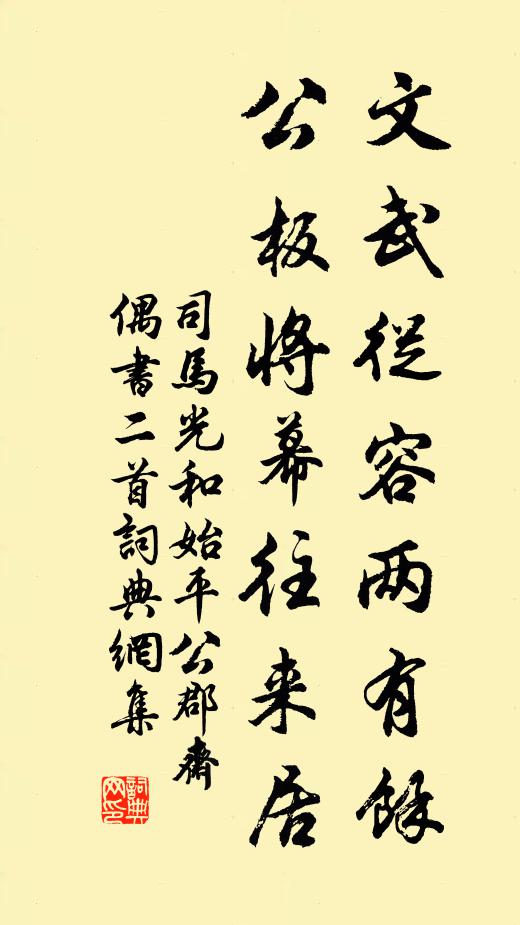 文武從容两有餘
公板將幕往来居
司馬光和始平公郡齋
偶書二首詞典網集
詞典
网印